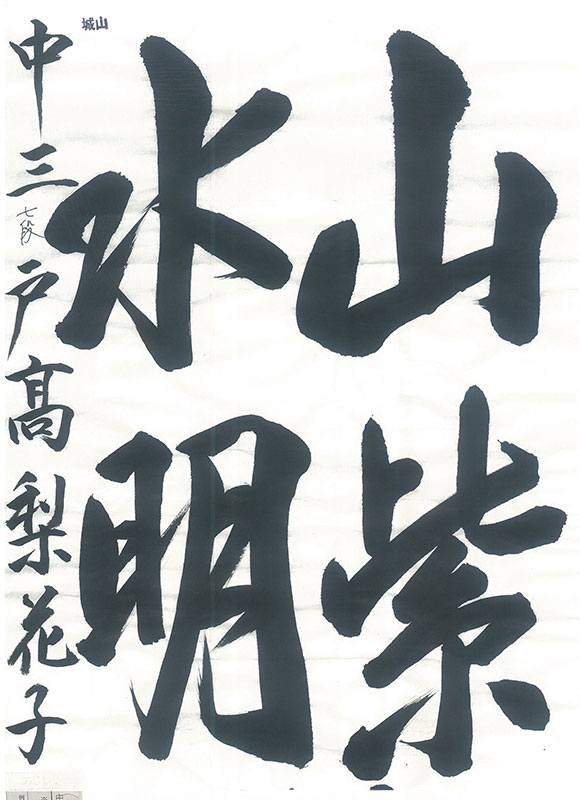 山紫
水明
中三 七段 戸髙梨花子
山城